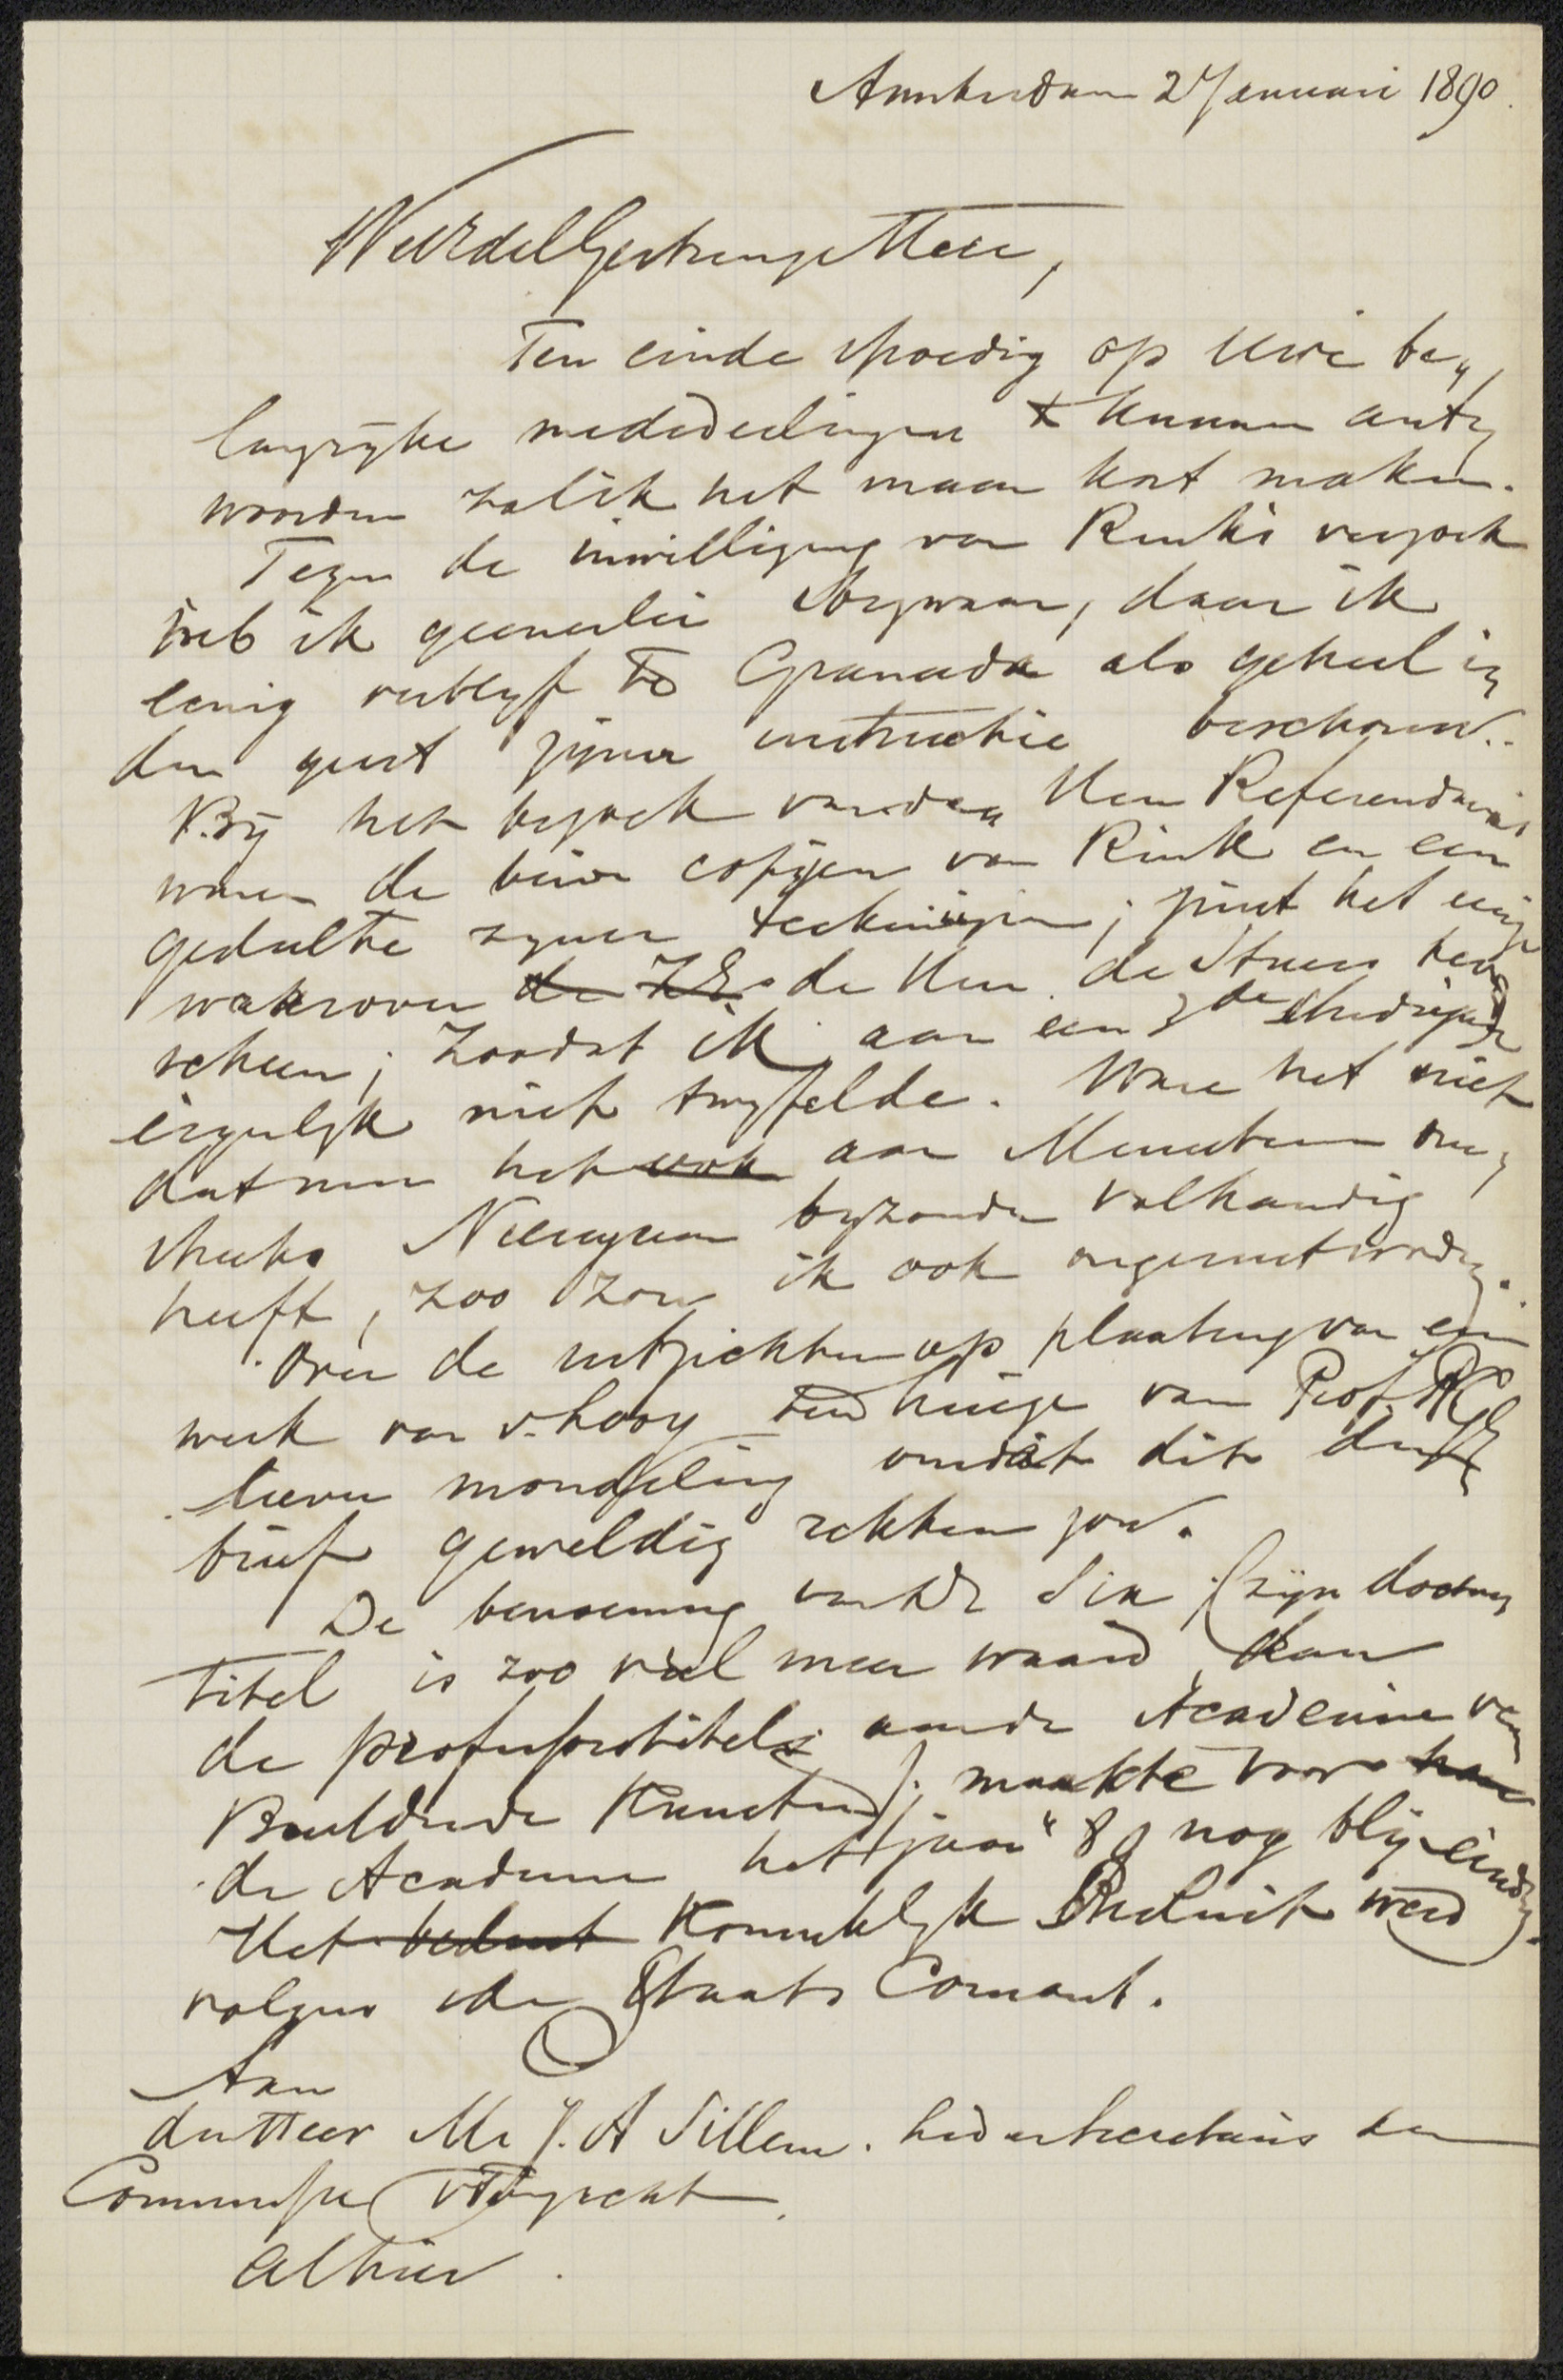 Amsterdam 2 Januari 1890.
WelEdelGestrenge Heer,
Ten einde spoedig op Uwe be„
langrijke mededeelingen te kunnen ant„
woorden zal ik het maar kort maken.
Tegen de inwilliging van Rinks verzoek
heb ik geenerlei bezwaar, daar ik
eenig verblijf te Granada als geheel in
den geest zijner instructie beschouw.
Bij het bezoek van den Heer Referendaris
waren de beide copijen van Rink en een
gedeelte zijner teekeningen; juist het eenige
waarover de ZE. de Heer de Stuers tevreden
scheen; zoodat ik aan een 3de
eigenlijk niet twyfelde. Ware het niet
dat men het ook aan Ministerie
heeft, zoo zou ik ook ongerust worden.
Over de uitzichten op plaatsing van een
werk van v. Looy ten huize van Prof.
liever mondeling omdat dit den
brief geweldig rekken zou.
De benoeming van Dr Six (zijn doctors
titel is zoo veel meer waard dan
de professorstitel aan de Academie van
Beeldende Kunsten); maakte voor
de Academie het jaar 89 nog blij eindig.
Het besluit Koninklijk Besluit werd
volgens de Staats Courant.
Aan
den Heer Mr J. A Sillem. Lid en Secretaris der
Commissie v Toezicht
Alhier.